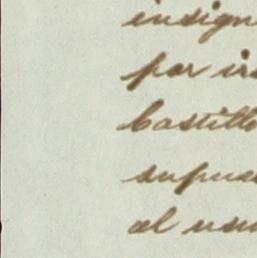 insign
por ir
Castillo
supues
al usu